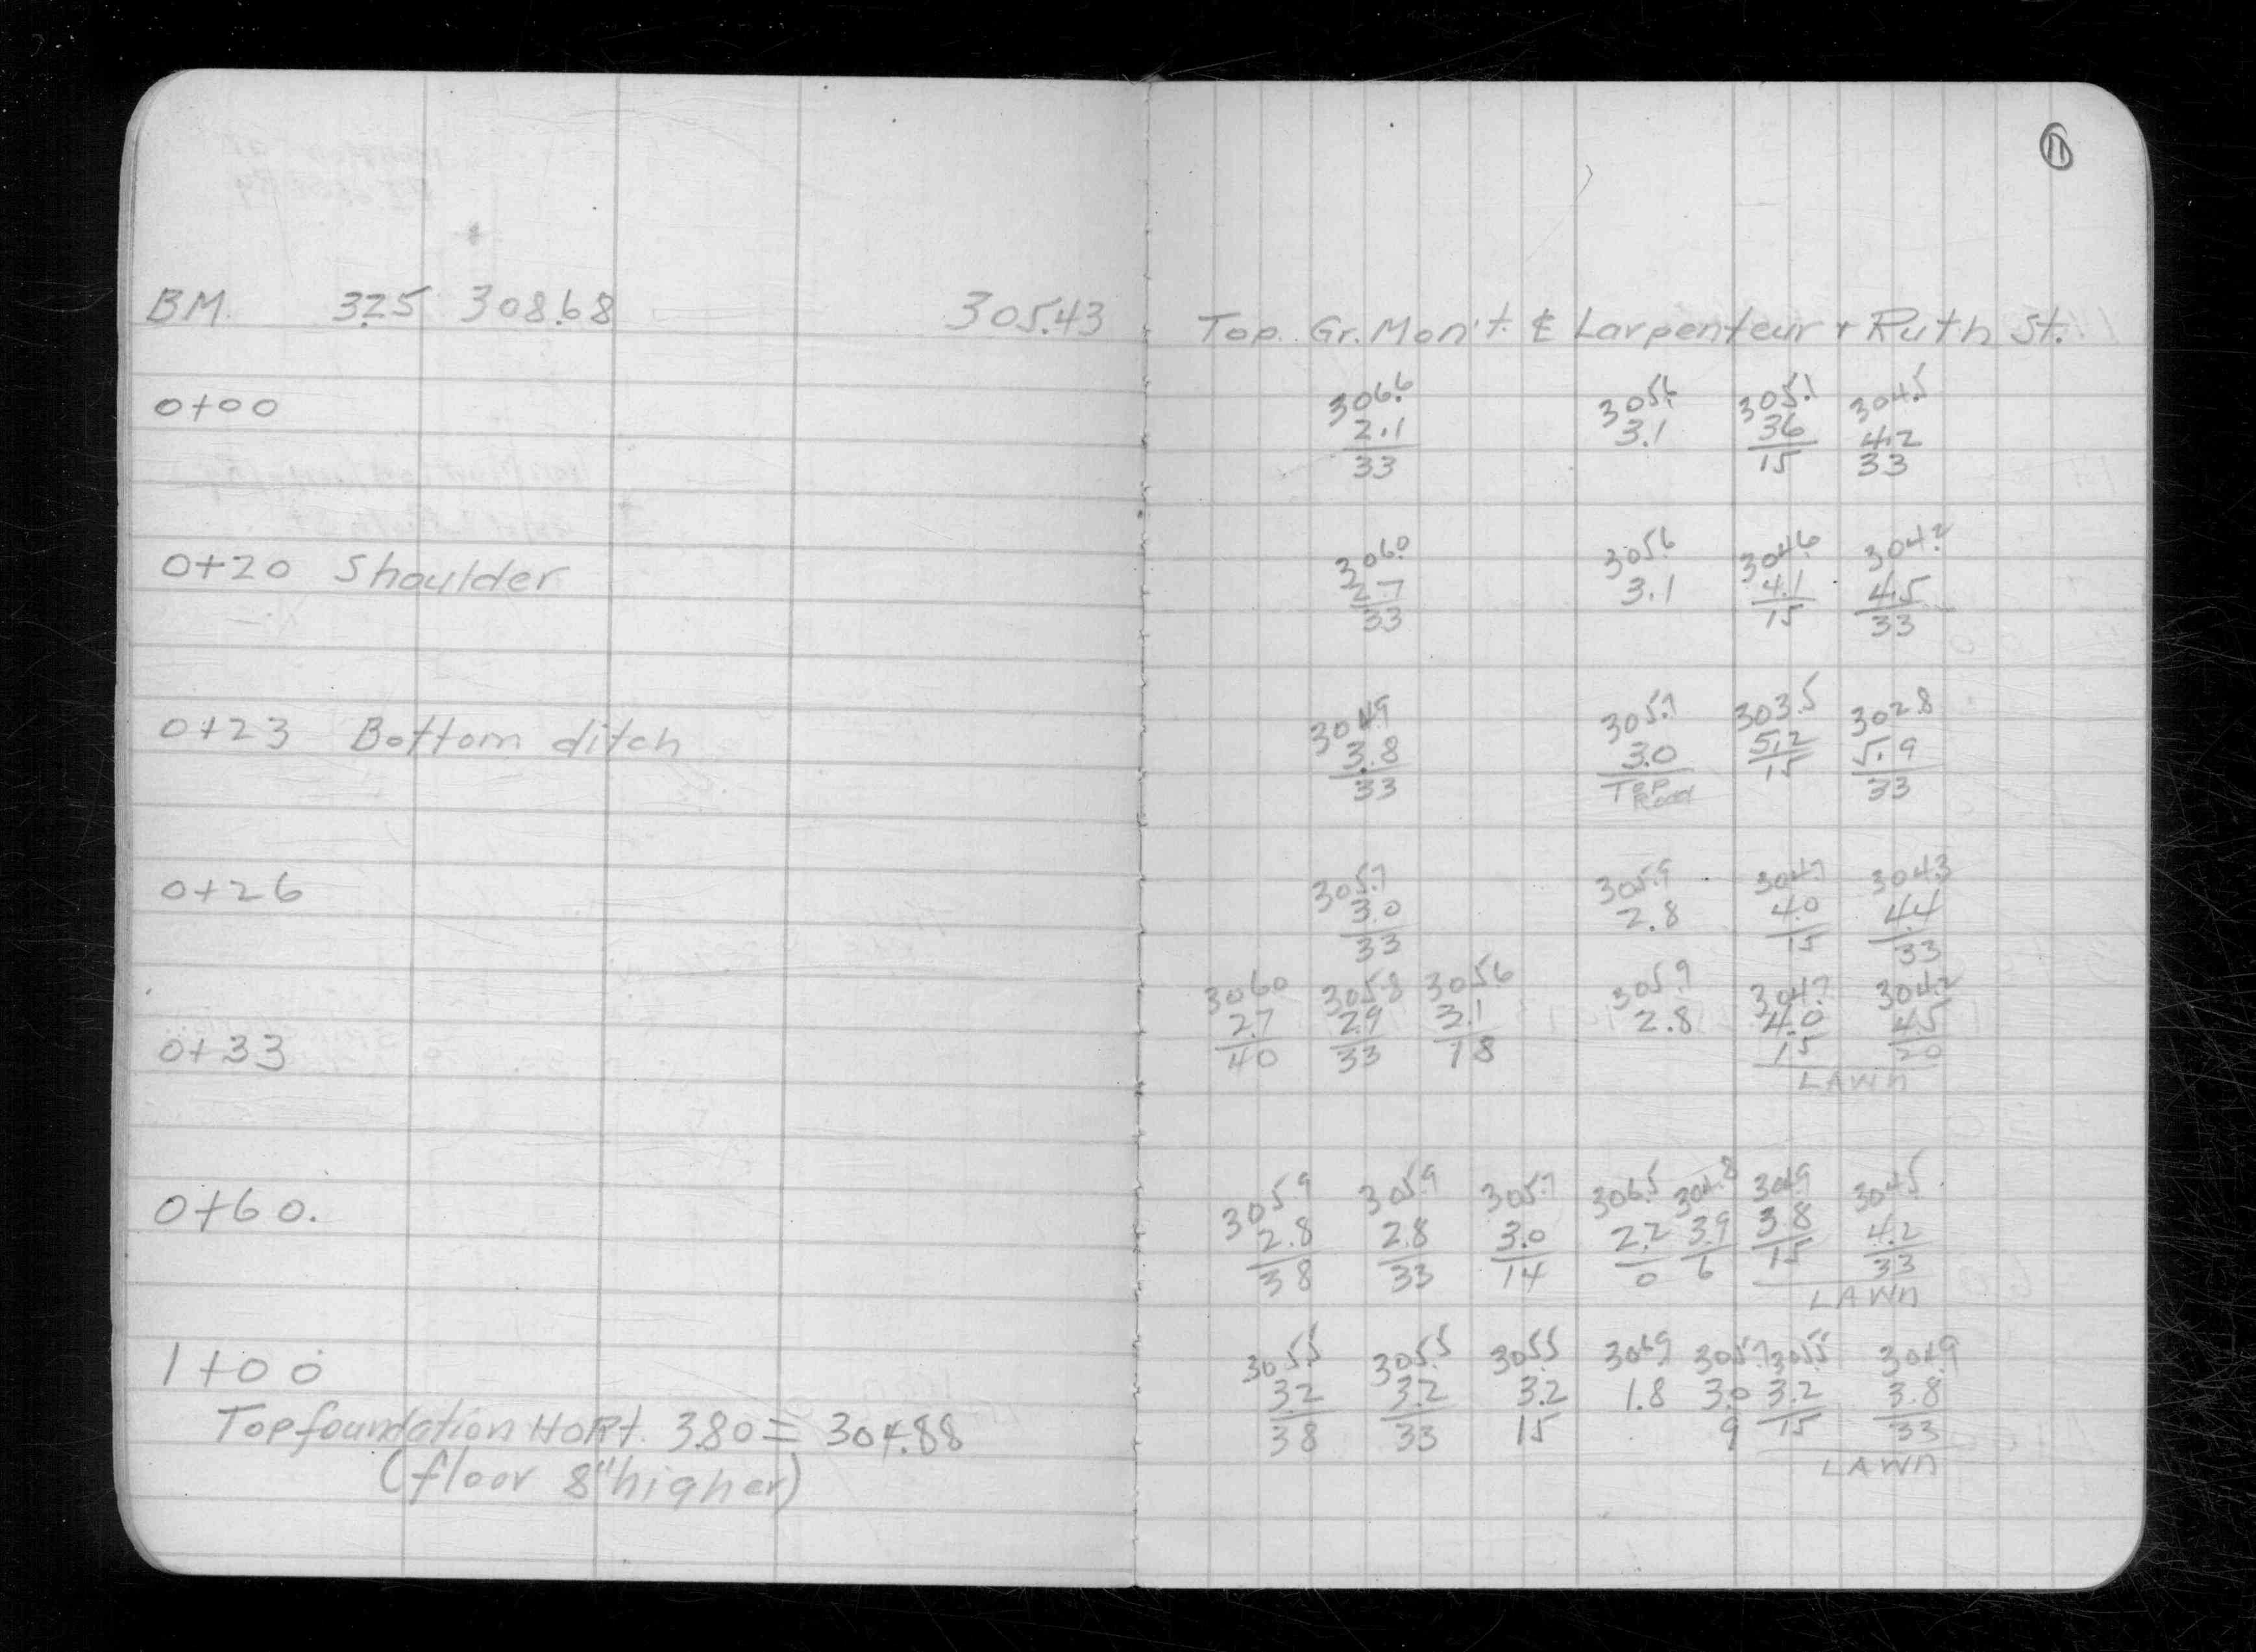 11
BM. 3.25 308.68 305.43 Top. Gr. Mon't. ℄ Larpenteur + Ruth St.
306.6 305.6 305.1 304.5
0+00 2.1 3.1 3.6 4.2
33 15 33
306.0 305.6 304.6 304.2
0+20 Shoulder 2.7 3.1 4.1 4.5
33 15 33
304.9 305.7 303.5 302.8
0+23 Bottom ditch 3.8 3.0 5.2 5.9
33 Top Road 15 33
305.7 305.9 304.7 304.3
0+26 3.0 2.8 4.0 4.4
33 15 33
306.0 305.8 305.6 305.9 304.7 304.2
2.7 2.9 3.1 2.8 4.0 4.5
0+33 40 33 18 15 20
LAWN
305.9 305.9 305.7 306.5 304.8 304.9 304.5
0+60. 2.8 2.8 3.0 2.2 3.9 3.8 4.2
38 33 14 0 6 15 33
LAWN
1+00 305.5 305.5 305.5 306.9 305.7 305.5 304.9
3.2 3.2 3.2 1.8 3.0 3.2 3.8
Top foundation HoRt. 3.80 = 304.88 38 33 15 9 15 33
(floor 8" higher) LAWN